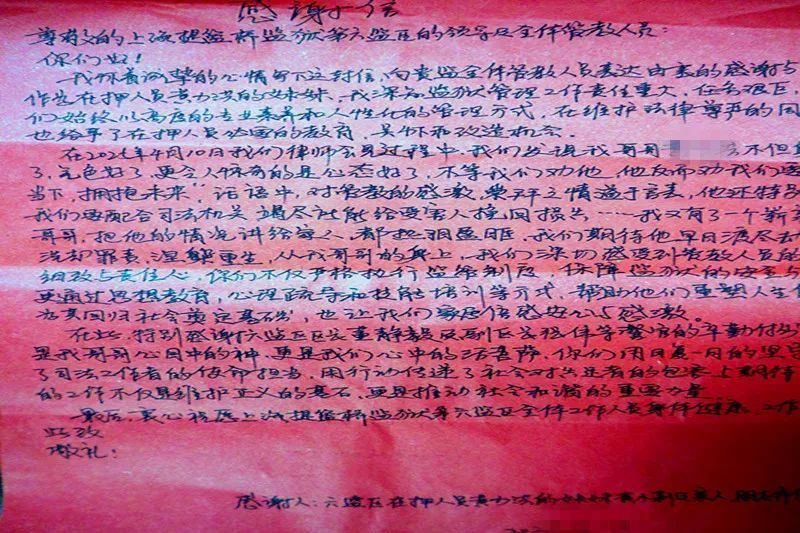 感谢信
尊敬的上海提篮桥监狱第六监区的领导及全体管教人员：
你们好！
我怀着诚挚的心情写下这封信，向贵监全体管教人员表达由衷的感谢与
作为在押人员 的妹妹，我深知监狱管理工作责任重大，任务艰巨，
们始终以高度的专业素养和人性化的管理方式，在维护法律尊严的同
也给予了在押人员必要的教育、关怀和改造机会。
在202 年4月10日我们律师会见过程中，我们发现我哥哥 不但
了，气色好了，更令人惊奇的是心态好了，不等我们劝他，他反而劝我们
当下，拥抱未来”，话语中，对管教的感激，崇拜之情溢于言表，他还特别
我们要配合司法机关 竭尽所能给受害人挽回损失……我又有了一个新
哥哥，把他的情况讲给家人，都热泪盈眶，我们期待他早日
洗却罪责，涅槃重生，从我哥哥的身上，我们深切感受到管教人员的
细致与责任心，你们不仅严格执行监管制度，保障监狱的安全与
更通过思想教育，心理疏导和技能培训等方式，帮助他们重塑人生
为其回归社会奠定基础，也让我们家属倍感安心与感激。
在此，特别感谢六监区区长董静毅及副区长 警官的辛勤付出
是我哥哥心目中的神，更是我们心中的活菩萨，你们用日复一日的坚
了司法工作者的使命担当，用行动传递了社会对失足者的包容与期待
的工作不仅是维护正义的基石，更是推动社会和谐的重要力量。
最后，衷心祝愿上海提篮桥监狱第六监区全体工作人员身体健康，工作
此致
敬礼！
感谢人：六监区在押人员 的妹妹 家人